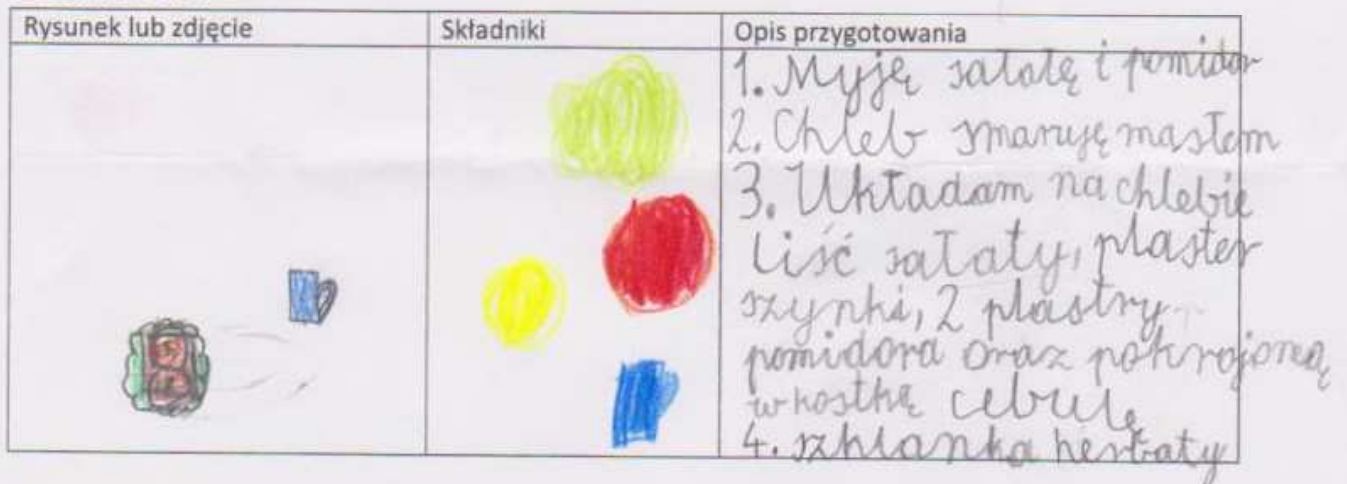 Rysunek lub zdjęcie
Składniki
Opis przygotowania
1. Myję sałatę i pomidor
2. Chleb smaruję masłem
3. Układam na chlebie
liść sałaty, plaster
szynki, 2 plastry
pomidora oraz pokrojoną
w kostkę cebulę
4. szklanka herbaty